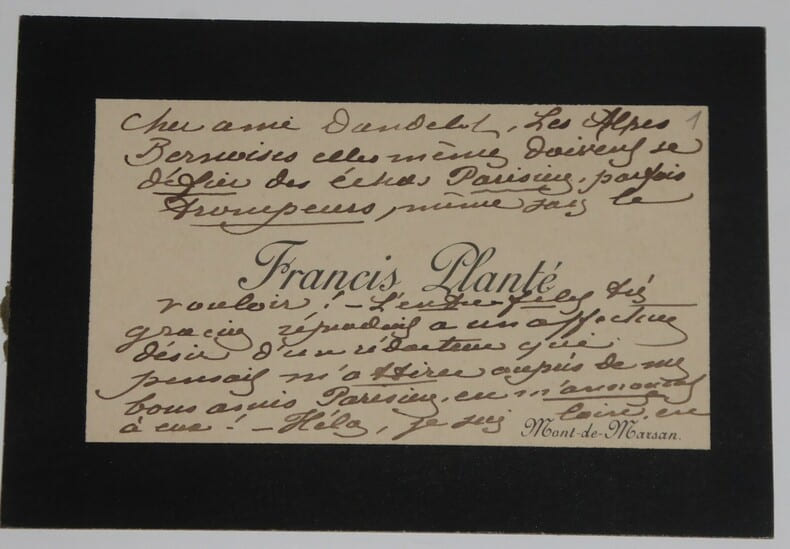 Cher ami Dandelot, Les Alpes 1
Bernoises elles mêmes doivent se
défier des échos Parisiens, parfois
trompeurs, même sans le
Francis Planté
vouloir ! – L'entre-filet très
gracieux répondait à un affectueux
désir d'un rédacteur qui
pensait m'attirer auprès de mes
bons amis Parisiens, en m'annonçant
à eux ! – Hélas, je suis loin, en
Mont-de-Marsan.